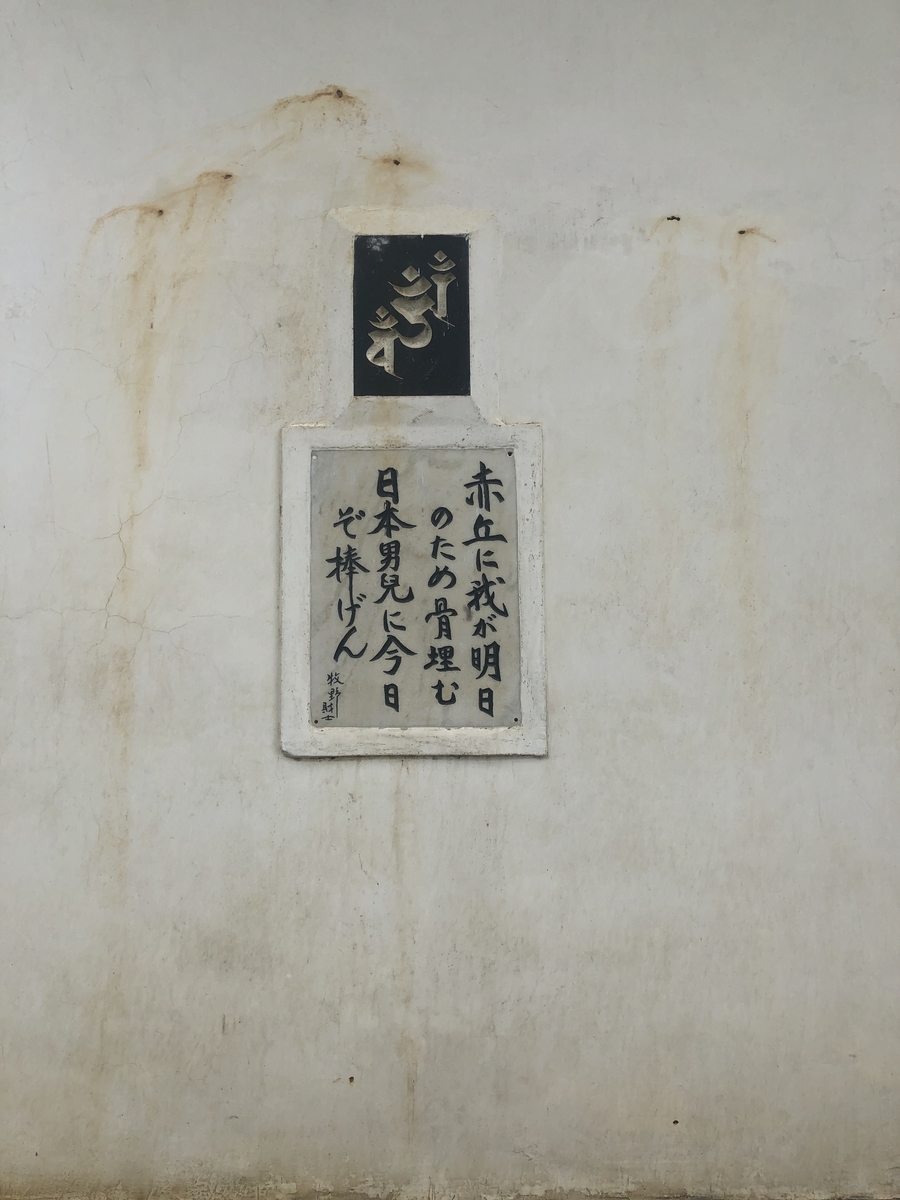 赤丘に我が明日
のため骨埋む
日本男兒に今日
ぞ棒げん
牧野財士